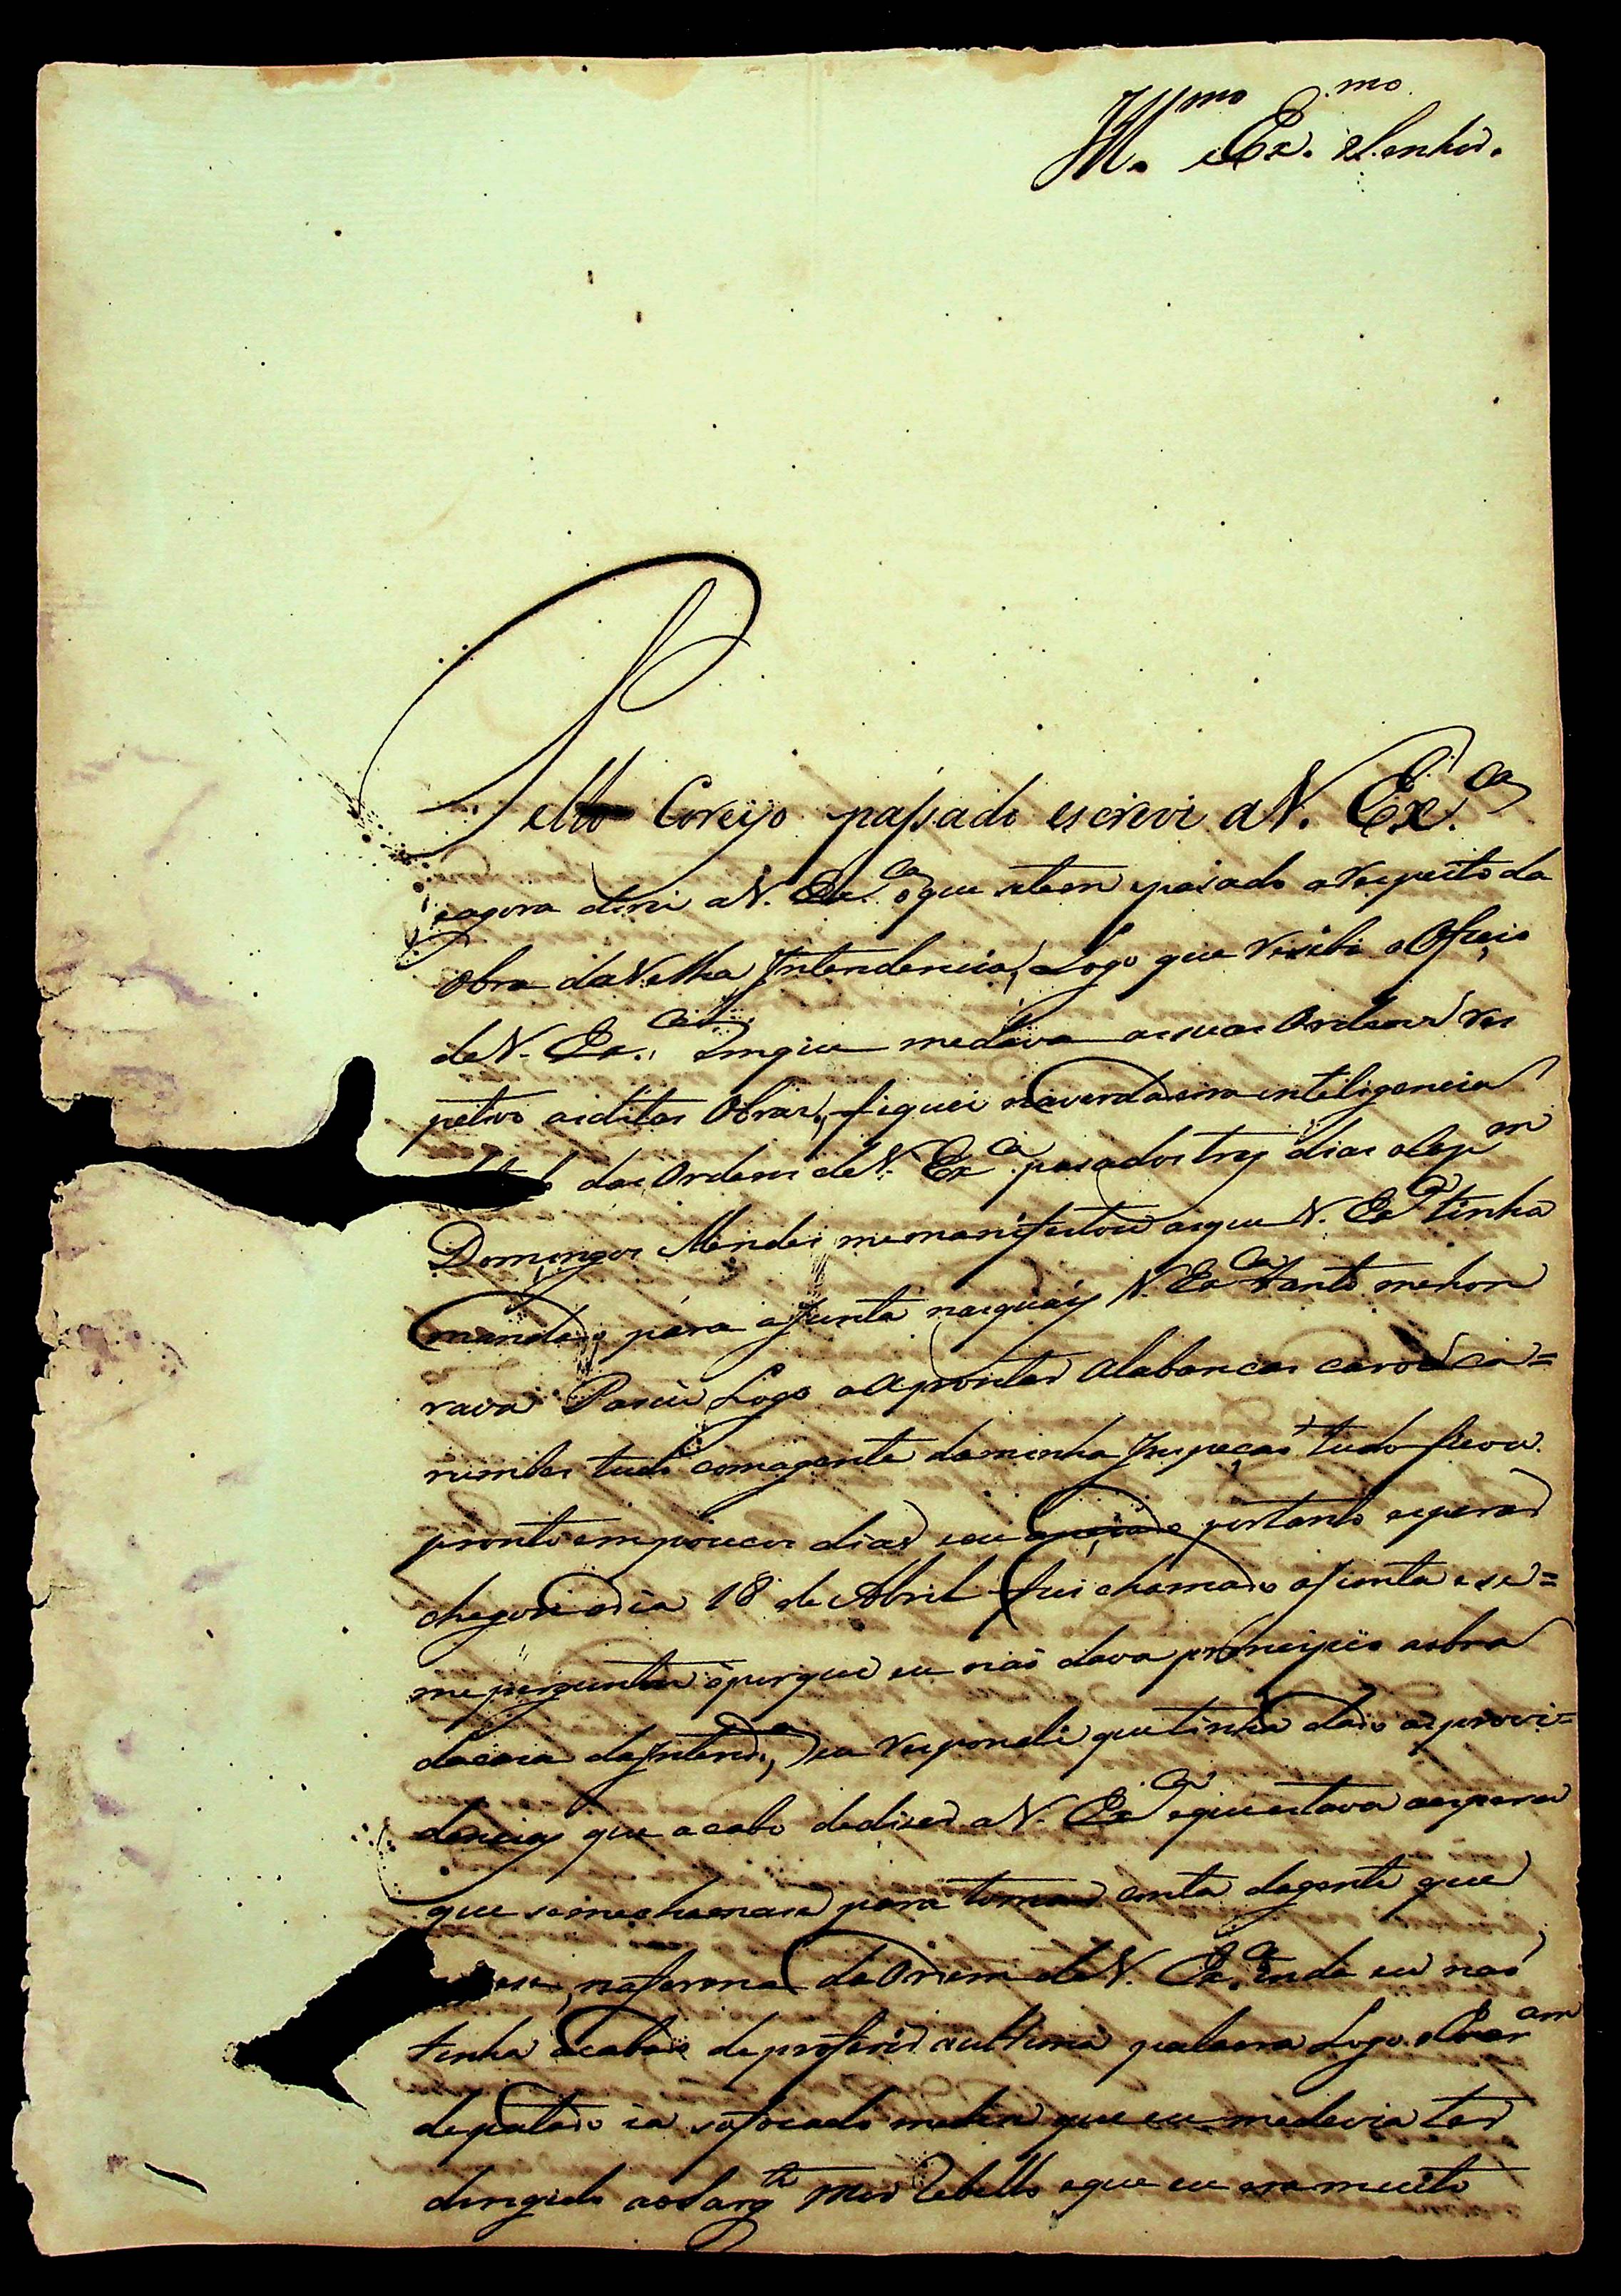 Ill.mo Ex.mo Senhor.
Pello Coreyo passado escrevi a V. Ex.ca
eagora direi a V. Ex.ca oque setem pasado arespeito da
Obra da Velha Intendencia, Logo que resibi o Oficio
de V. Ex.ca emque medava assuas Ordens res
petivo aiditas Obras, fiquei naverdadeira inteligencia
das Ordens de V. Ex.ca pasados trez dias o Cap.m
Domingos Mendes memanifestou asque V. Ex.ca tinha
mandado para aJunta nasquais V. Ex.ca tanto mehon
rava Pasei Logo a Aprontar Alabancas
tudo comagente daminha Inspeçaõ tudo ficou
pronto empoucos dias eeu portanto esperar
chegou odia 18 de Abril fui chamado aJunta ese=
meperguntou oporque eu naõ dava principio aobra
dacasa daIntend.a, eu respondi quetinha dado asprovi=
dencias que acabo dedizer a V. Ex.ca equeestava aespera
que semechamase para tomar conta dagente que
naforma da Ordem de V. Ex.ca inda eu naõ
tinha acabado deproferir aultima palavra Logo o
deputado ia sofocado medise que eu medevia ter
dirigido aoSarg.to Mor Rebello eque eu eramuito